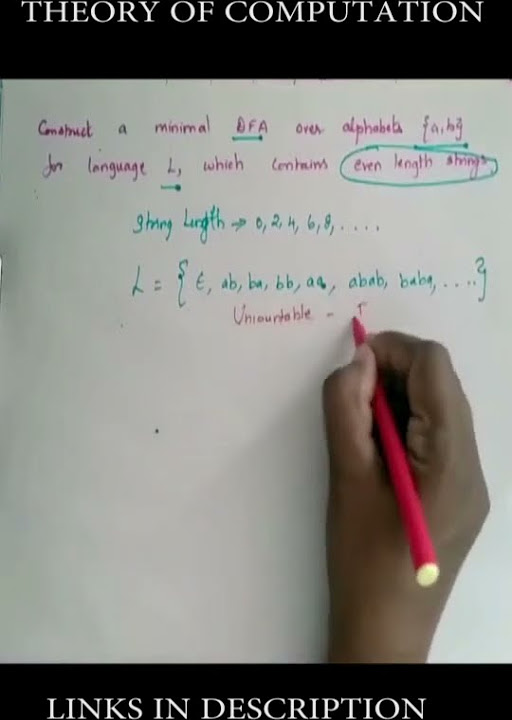 THEORY OF COMPUTATION
Construct a minimal DFA over alphabets {a,b}
for language L, which contains even length strings
String length → 0, 2, 4, 6, 8, . . . .
L = { ε, ab, ba, bb, aa, abab, baba, . . . . }
Uncountable - I
LINKS IN DESCRIPTION